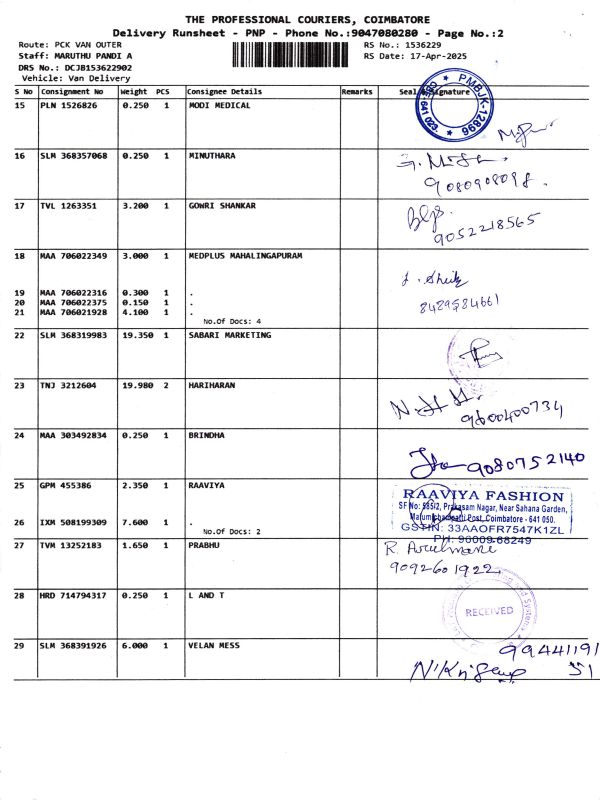 THE PROFESSIONAL COURIERS, COIMBATORE
Delivery Runsheet - PNP - Phone No.:9047080280 - Page No.:2
Route: PCK VAN OUTER
RS No.: 1536229
Staff: MARUTHU PANDI A
RS Date: 17-Apr-2025
DRS No.: DCJB153622902
Vehicle: Van Delivery
S No Consignment No Weight PCS Consignee Details Remarks Seal Signature
PMBJK-12896
CBE 641 023.
15 PLN 1526826 0.250 1 MODI MEDICAL
16 SLM 368357068 0.250 1 MINUTHARA
9080908098.
17 TVL 1263351 3.200 1 GOWRI SHANKAR
9052218565
18 MAA 706022349 3.000 1 MEDPLUS MAHALINGAPURAM
19 MAA 706022316 0.300 1 .
20 MAA 706022375 0.150 1 .
21 MAA 706021928 4.100 1 .
8489584661
No.Of Docs: 4
22 SLM 368319983 19.350 1 SABARI MARKETING
23 TNJ 3212604 19.980 2 HARIHARAN
9600400734
24 MAA 303492834 0.250 1 BRINDHA
9080752140
25 GPM 455386 2.350 1 RAAVIYA
RAAVIYA FASHION
SF No: 585/2, Prakasam Nagar, Near Sahana Garden,
Post, Coimbatore - 641 050.
26 IXM 508199309 7.600 1 .
No.Of Docs: 2
GSTIN: 33AAOFR7547K1ZL
PH: 90009 68249
27 TVM 13252183 1.650 1 PRABHU
R. Arulmani
9092601922
28 HRD 714794317 0.250 1 L AND T
RECEIVED
29 SLM 368391926 6.000 1 VELAN MESS
99441191
51